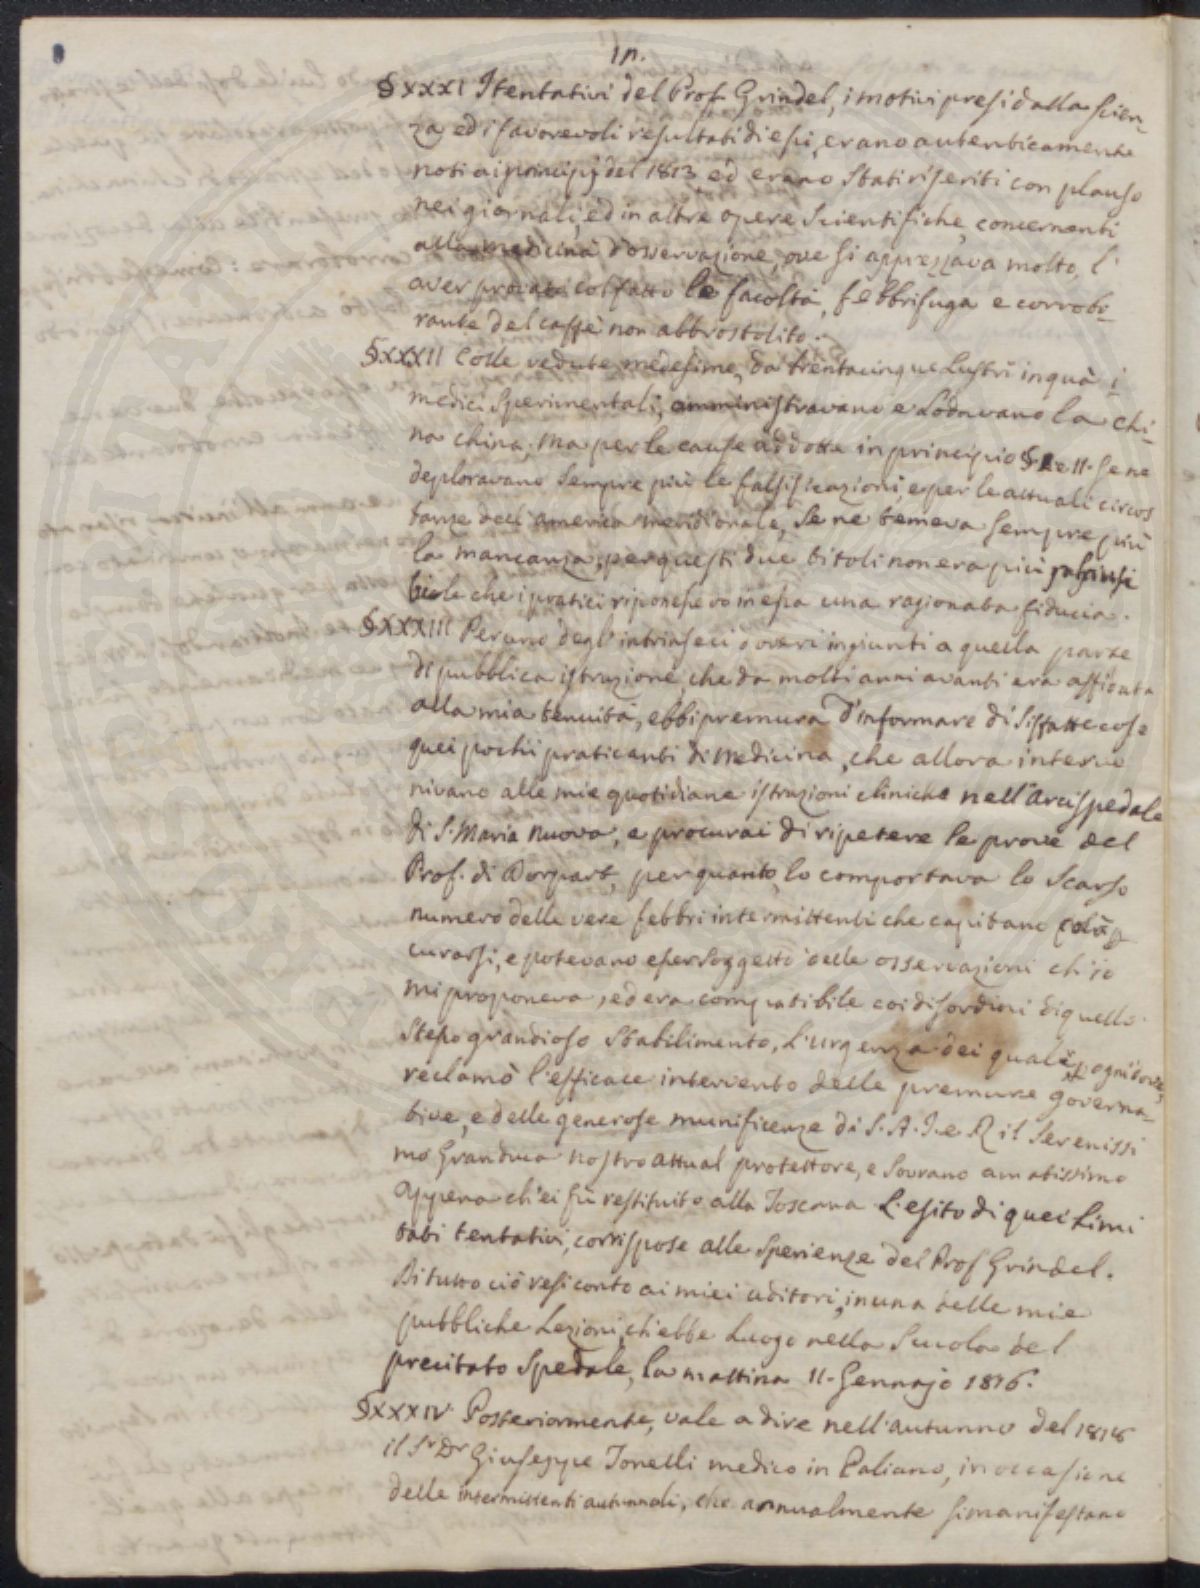 1n.
§XXXI I tentativi del Prof. Grindel, i motivi presi dalla scien-
za ed i favorevoli resultati di essi, erano autenticamente
noti ai principj del 1813 ed erano stati riferiti con plauso
nei giornali, ed in altre opere scientifiche, concernenti
alla medicina d'osservazione, ove si apprezzava molto, l'
aver provato col fatto le facoltà, febbrifuga e corrobo-
rante del caffè non abbrostolito.
§XXXII Colle vedute medesime, da trentacinque Lustri in quà i
medici Sperimentali, amministravano e Lodavano la chi-
na china; ma per le cause addotte in principio § I. e II. se ne
deploravano sempre più le falsificazioni, e per le attuali circos
tanze dell'america meridionale, se ne temeva sempre più
la mancanza; per questi due titoli non era più
bile che i pratici riponessero in essa una ragionata fiducia.
§XXXIII Per uno degl'intrinseci doveri ingiunti a quella parte
di pubblica istruzione, che da molti anni avanti era affidata
alla mia tenuità, ebbi premura d'informare di siffatte cose
quei pochi praticanti di Medicina, che allora interve
nivano alle mie quotidiane istruzioni cliniche nell'Arcispedale
di S. Maria Nuova, e procurai di ripetere le prove del
Prof. di Dorpart, per quanto lo comportava lo scarso
numero delle vere febbri intermittenti che capitano colà p
curarsi, e potevano esser soggetto delle osservazioni ch'io
mi proponeva, ed era compatibile coi disordini di quello
stesso grandioso Stabilimento, L'urgenza dei quali p ogni dove,
reclamò l'efficace intervento delle premure governa-
tive, e delle generose munificenze di S. A. I. e R il Serenissi
mo Granduca nostro attual protettore, e Sovrano amatissimo
appena ch'ei fù restituito alla Toscana L'esito di quei Limi
tati tentativi, corrispose alle sperienze del Prof Grindel.
Di tutto ciò resi conto ai miei uditori, in una delle mie
pubbliche Lezioni, ch'ebbe Luogo nella Scuola del
precitato Spedale, la mattina 11. Gennajo 1816.
§XXXIV. Posteriormente, vale a dire nell'autunno del 1816
il Sr. Dr Giuseppe Tonelli medico in Paliano, in occasione
delle intermittenti autunnali, che annualmente si manifestano